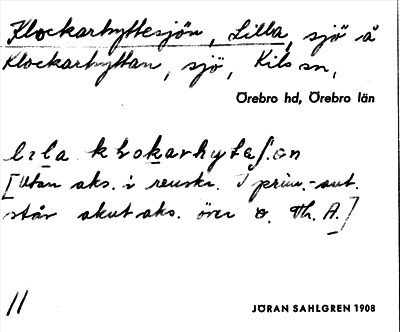 Klockarhyttesjön, Lilla, sjö å
Klockarhyttan, sjö, Kils sn,
Örebro hd, Örebro län
lıla klokarhytaʃ.ön
[Utan aks. i renskr. I prim.-ant.
står akut aks. över o. Th. A.]
11
JÖRAN SAHLGREN 1908